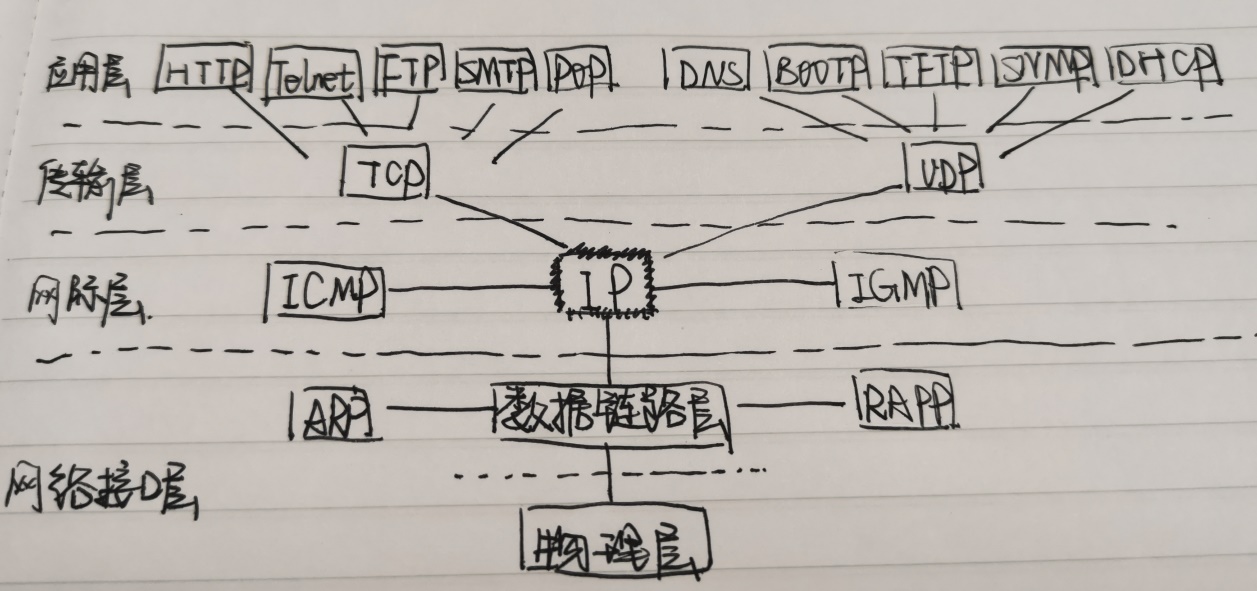 应用层 HTTP Telnet FTP SMTP POP DNS BOOTP TFTP SNMP DHCP
传输层 TCP UDP
网际层 ICMP IP IGMP
ARP 数据链路层 RAPP
网络接口层
物理层